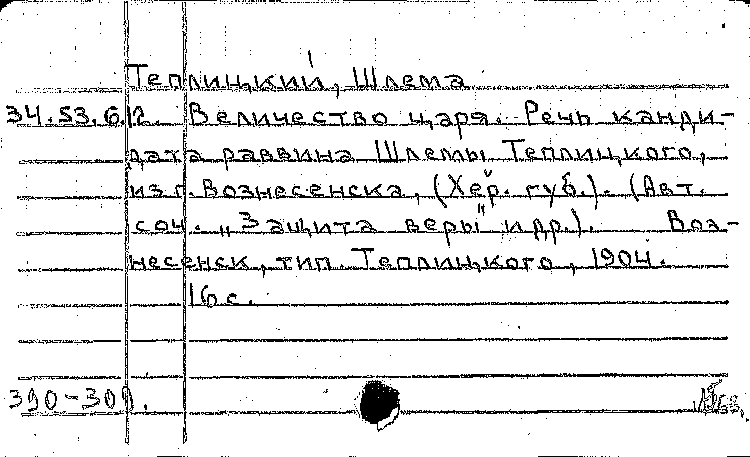 Теплицкий, Шлема
34.53.6.12. Величество царя. Речь канди-
дата раввина Шлемы Теплицкого,
из г. Вознесенска, (Хер. губ.). (Авт.
соч. „Защита веры" и др.). Воз-
несенск, тип. Теплицкого, 1904.
16 с.
390-309.